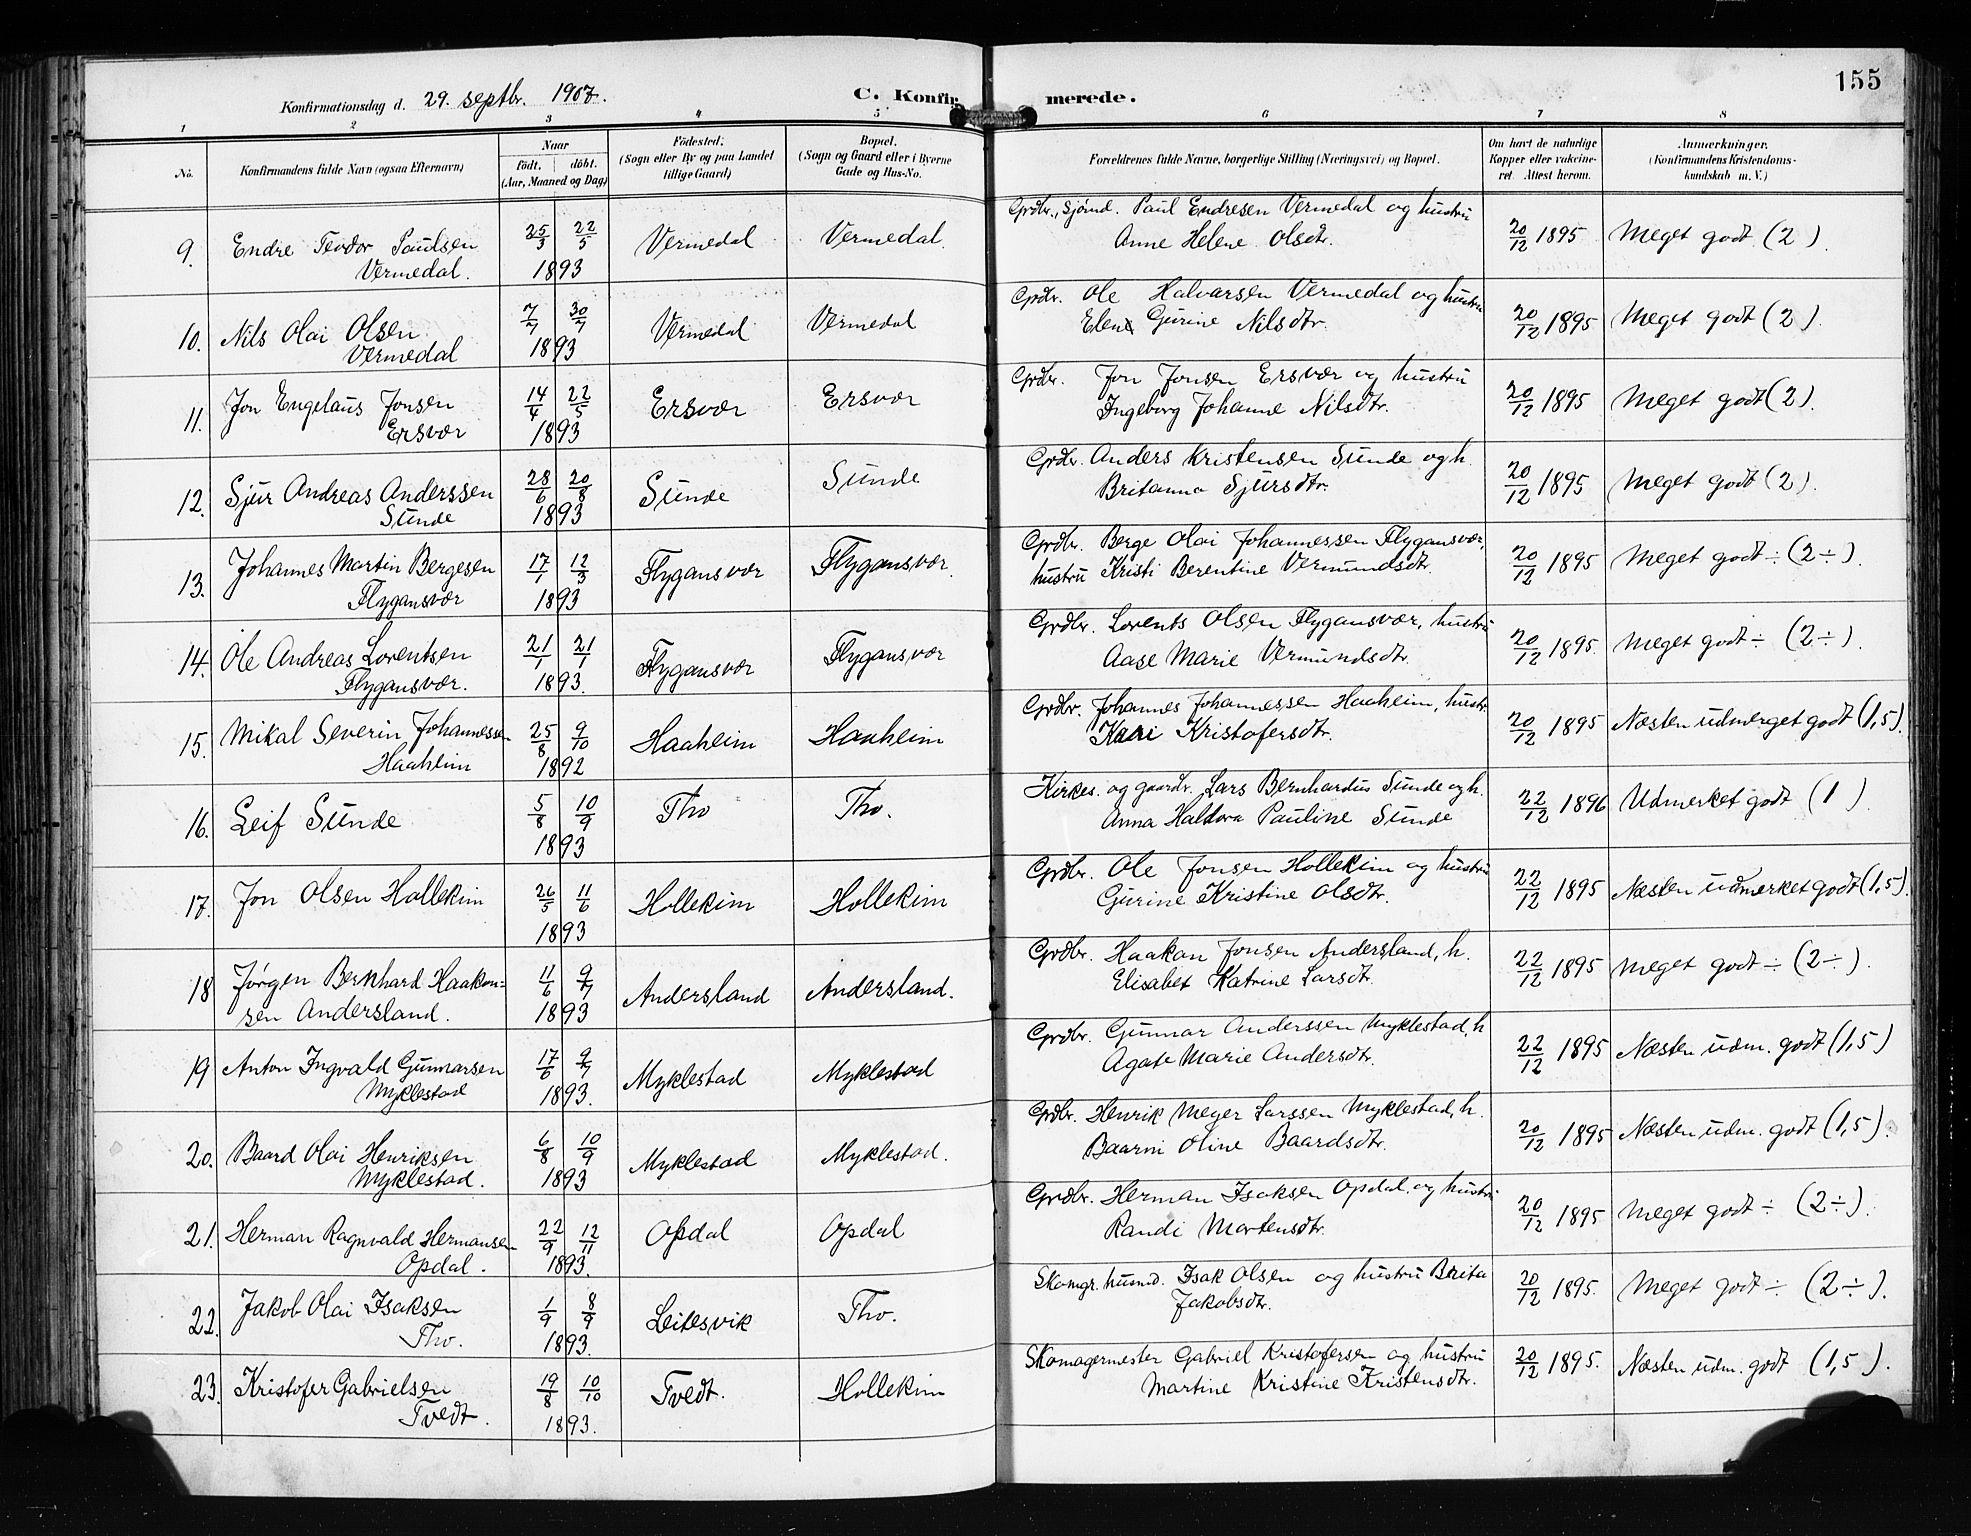 155
Konfirmationsdag d. 29. septbr. 1907.
C. Konfirmerede.
1 2 3 4 5 6 7 8
No. Konfirmandens fulde Navn (ogsaa Efternavn) Naar født, døbt. (Aar, Maaned og Dag) Födested. (Sogn eller By og paa Landet tillige Gaard) Bopæl. (Sogn og Gaard eller i Byerne Gade og Hus-No. Forældrenes fulde Navne, borgerlige Stilling (Næringsvei) og Bopæl. Om havt de naturlige Kopper eller vakcineret. Attest herom. Anmærkninger. (Konfirmandens Kristendomskundskab m. V.)
9. Endre Teodor Paulsen Vermedal. 25/3 22/5 1893 Vermedal Vermedal. Grdbr., Sjømd. Paul Endresen Vermedal og hustru
Anne Helene Olsdtr. 20/12 1895 Meget godt (2).
10. Nils Olai Olsen Vermedal 7/7 30/7 1893 Vermedal Vermedal Grdbr. Ole Halvarsen Vermedal og hustru
Elen Gurine Nilsdtr. 20/12 1895 Meget godt (2).
11. Jon Engelaus Jonsen Ersvær 14/4 22/5 1893 Ersvær Ersvær Grdbr. Jon Jonsen Ersvær og hustru
Ingeborg Johanne Nilsdtr. 20/12 1895 Meget godt (2).
12. Sjur Andreas Anderssen Sunde 28/6 20/8 1893 Sunde Sunde Grdbr. Anders Kristensen Sunde og h.
Britanna Sjursdtr. 20/12 1895 Meget godt (2).
13. Johannes Martin Bergesen Flygansvær 17/1 12/3 1893 Flygansvær Flygansvær. Grdbr. Berge Olai Johannessen Flygansvær,
hustru Kristi Berentine Vermundsdtr. 20/12 1895 Meget godt ÷ (2÷).
14. Ole Andreas Lorentsen Flygansvær. 21/1 21/1 1893. Flygansvær Flygansvær Grdbr. Lorents Olsen Flygansvær, hustru
Aase Marie Vermundsdtr. 20/12 1895. Meget godt ÷ (2÷).
15. Mikal Severin Johannessen Haaheim 25/8 9/10 1892 Haaheim Haaheim Grdbr. Johannes Johannessen Haaheim, hustr.
Kari Kristofersdtr. 20/12 1895 Næsten udmerget godt (1,5).
16. Leif Sunde 5/8 10/9 1893 Tho Tho. Kirkes. og gaardr. Lars Bernhardus Sunde og h.
Anna Haldora Pauline Sunde 22/12 1896 Udmerket godt (1).
17. Jon Olsen Hollekim 26/5 11/6 1893 Hollekim Hollekim Grdbr. Ole Jonsen Hollekim og hustru
Gurine Kristine Olsdtr. 22/12 1895 Næsten udmerket godt (1,5).
18 Jørgen Bernhard Haakonsen Andersland. 11/6 9/7 1893 Andersland Andersland. Grdbr. Haakon Jonsen Andersland, h.
Elisabet Katrine Larsdtr. 22/12 1895 Meget godt ÷ (2÷).
19 Anton Ingvald Gunnarsen Myklestad 17/6 9/7 1893. Myklestad Myklestad Grdbr. Gunnar Anderssen Myklestad, h
Agate Marie Andersdtr. 22/12 1895 Næsten udm. godt (1,5)
20. Baard Olai Henriksen Myklestad. 6/8 10/9 1893 Myklestad Myklestad. Grdbr. Henrik Meyer Larssen Myklestad, h.
Baarni Oline Baardsdtr. 20/12 1895 Næsten udm. godt (1,5).
21. Herman Ragnvald Hermansen Opdal. 22/9 12/11 1893. Opdal Opdal Grdbr. Herman Isaksen Opdal. og hustru
Randi Mortensdtr. 20/12 1895 Meget godt ÷ (2÷).
22. Jakob Olai Isaksen Tho. 1/9 8/9 1893. Leitesvik Tho. Skomgr. husmd. Isak Olsen og hustru Brita
Jakobsdtr. 20/12 1895. Meget godt ÷ (2÷).
23. Kristofer Gabrielsen Tvedt. 19/8 10/10 1893. Tvedt. Hollekim Skomagermester Gabriel Kristofersen og hustru
Martine Kristine Kristensdtr. 20/12 1895. Næsten udm. godt (1,5).